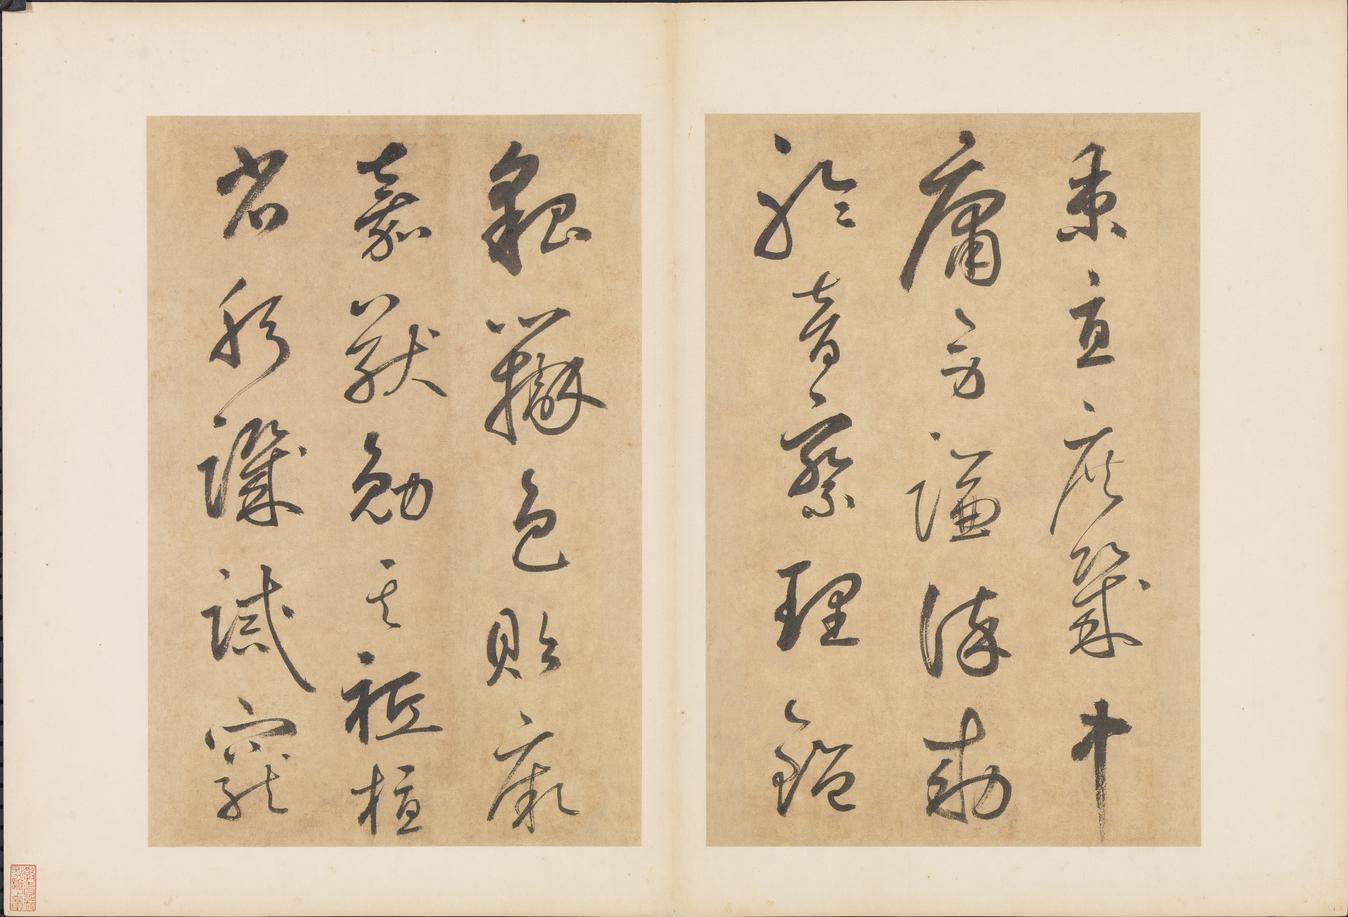 秉直庶幾中
庸勞謙謹勅
聆音察理鑑
貌辨色貽厥
嘉猷勉其祗植
省躬譏誡寵